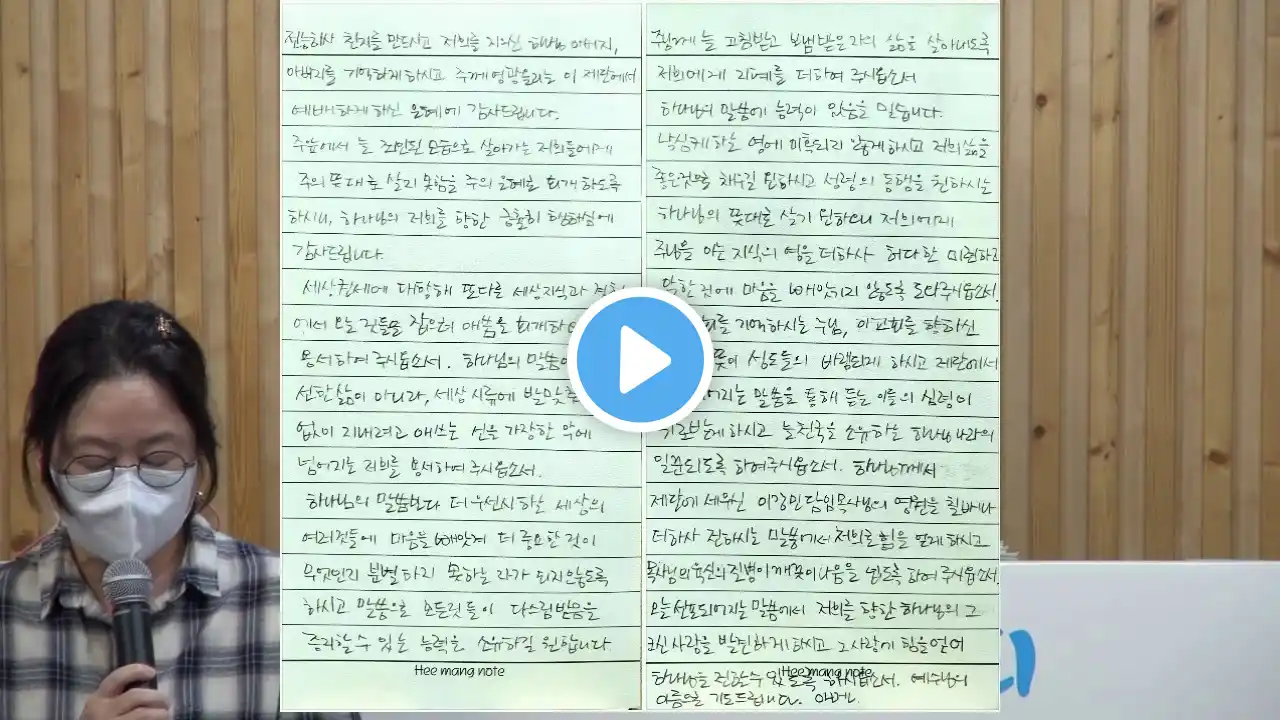 전능하사 천지를 만드시고 저희를 지으신 하나님 아버지,
아버지를 기억하게 하시고 주께 영광 올리는 이 제단에서
예배하게 하신 은혜에 감사드립니다.
주앞에서 늘 죄인된 모습으로 살아가는 저희들에게
주의 뜻대로 살지 못함을 주의 은혜로 회개하도록
하시니, 하나님의 저희를 향한 긍휼히 행하심에
감사드립니다.
세상권세에 대항해 또다른 세상지식과
에서 오는 것들로 잡으려 애씀을 회개하
용서하여 주시옵소서. 하나님의 말씀
선한 삶이 아니라, 세상 시류에 발맞추
없이 지내려고 애쓰는 선을 가장한 악에
넘어지는 저희를 용서하여 주시옵소서.
하나님의 말씀보다 더 우선시 하는 세상의
여러것들에 마음을 빼앗겨 더 중요한 것이
무엇인지 분별하지 못하는 자가 되지않도록
하시고 말씀으로 모든것들이 다스림받음을
증거할 수 있는 능력을 소유하길 원합니다.
Hee mang note
주님께 늘 고침받고 보냄받은 자의 삶을 살아내도록
저희에게 지혜를 더하여 주시옵소서
하나님의 말씀에 능력이 있음을 믿습니다.
낙심케 하는 영에 미혹되지 않게 하시고 저희 삶을
좋은것으로 채우길 원하시고 성령의 동행을 원하시는
하나님의 뜻대로 살기 원하오니 저희에게
주님을 아는 지식의 영을 더하사 허다한 미련하고
악한 것에 마음을 빼앗기지 않도록 도와주시옵소서.
를 기억하시는 주님, 이교회를 향하신
뜻이 성도들의 바램되게 하시고 제단에서
어지는 말씀을 통해 듣는 이들의 심령이
하시고 늘 천국을 소유하는 하나님나라의
일꾼되도록 하여주시옵소서. 하나님께서
제단에 세우신 이강민 담임목사님의 영권을 칠배나
더하사 전하시는 말씀에서 저희로 힘을 얻게 하시고
목사님의 육신의 질병이 깨끗이 나음을 입도록 하여 주시옵소서.
오늘 선포되어지는 말씀에서 저희를 향한 하나님의 그
크신 사랑을 발견하게 하시고 그 사랑에 힘을 얻어
하나님을 전할 수 있도록 하시옵소서. 예수님의
이름으로 기도드립니다. 아멘.
Hee mang note